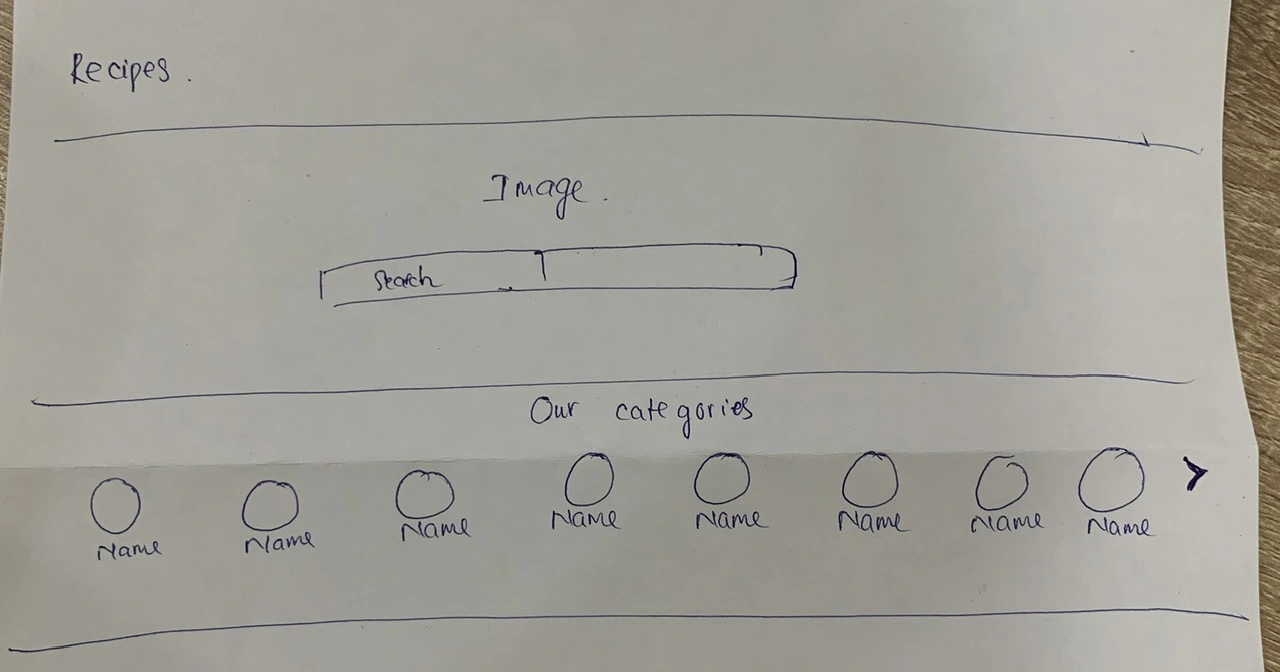 Recipes.
Image.
Search
Our categories
Name Name Name Name Name Name Name Name